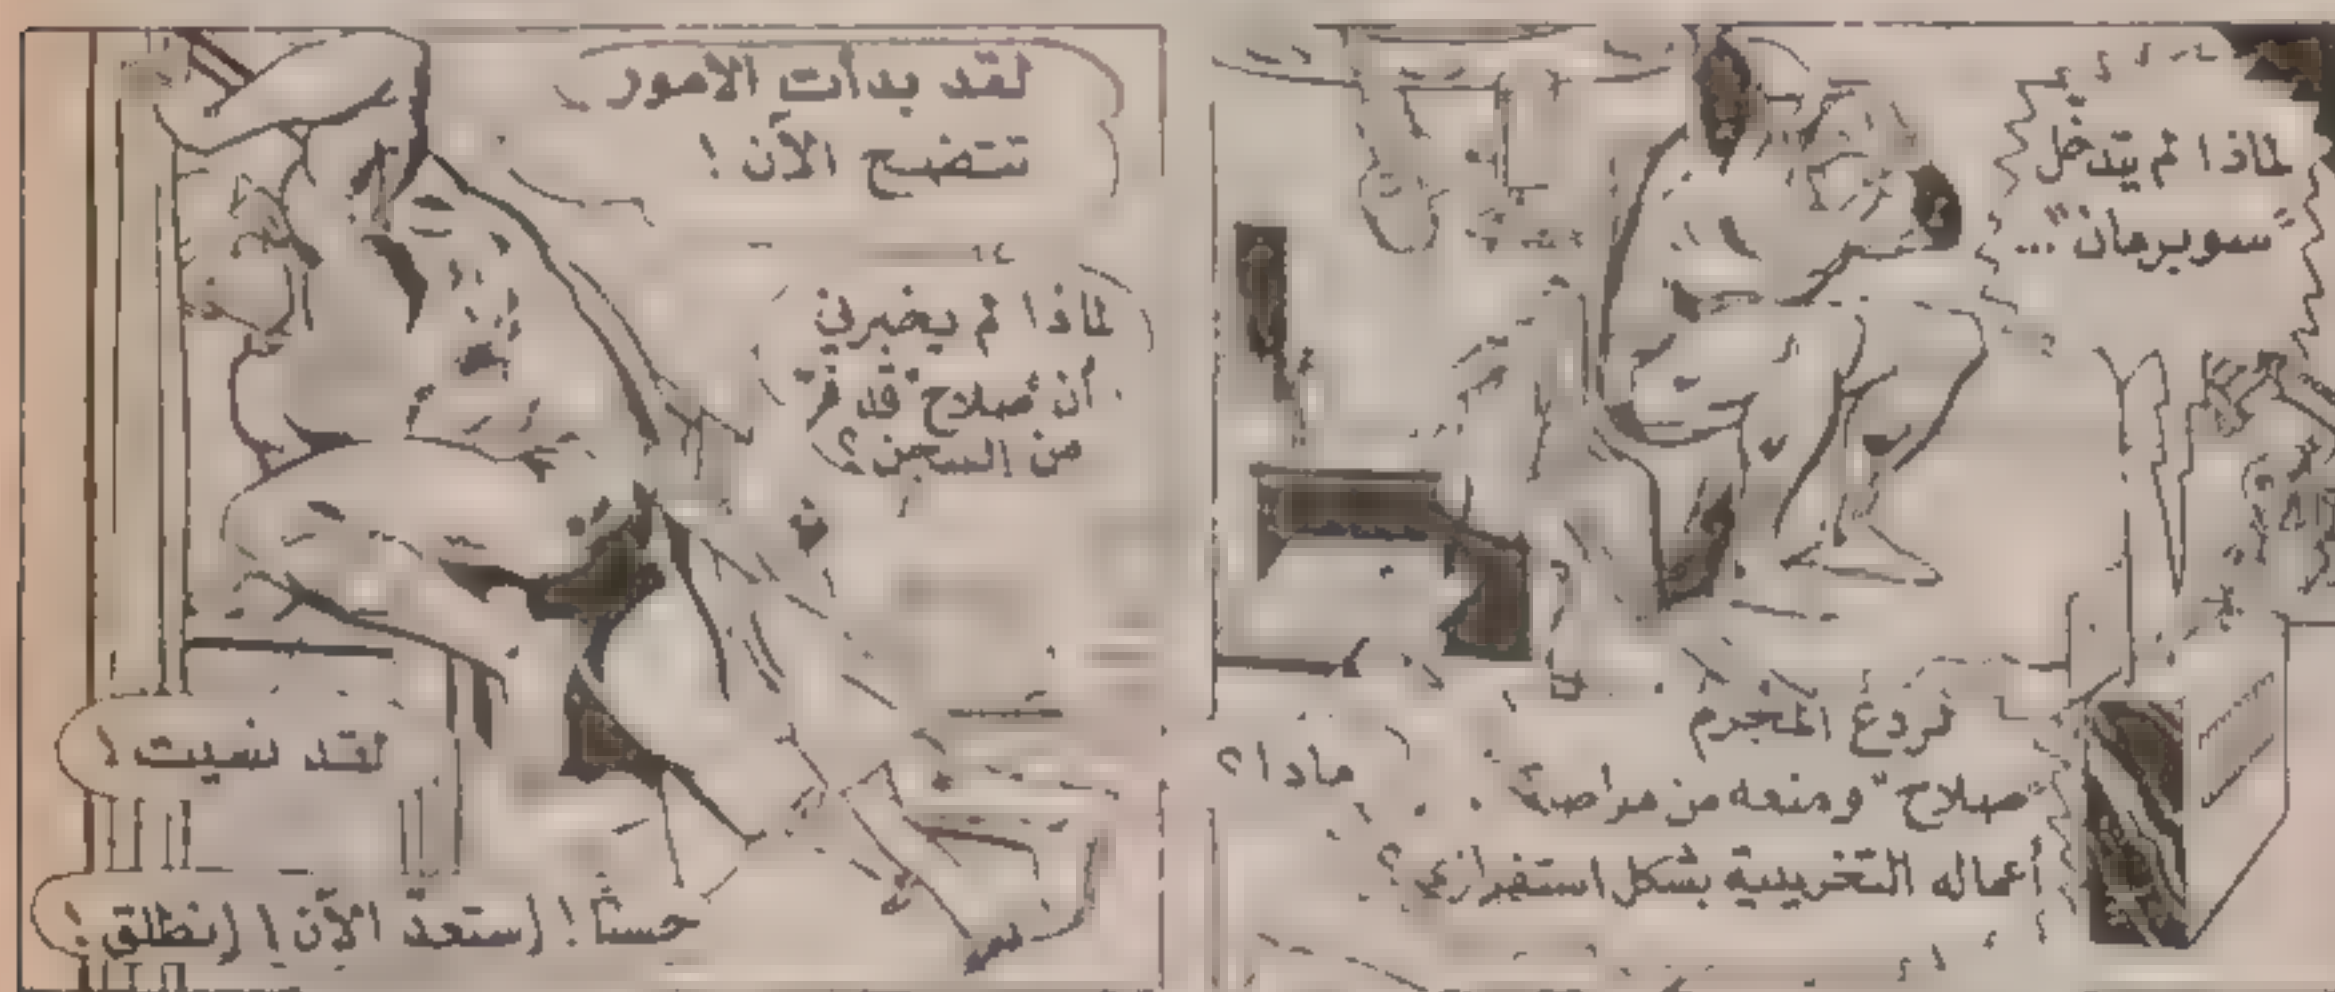 لماذا لم يتدخل
"سوبرمان"...
لردع المجرم
"صلاح" ومنعه من مواصلة
أعماله التخريبية بشكل استفزازي؟
ماذا؟
لقد بدأت الأمور
تتضح الآن!
لماذا لم يخبرني
أن "صلاح" قد فر
من السجن؟
لقد نسيت!
حسناً! إستعدّ الآن! إنطلق!